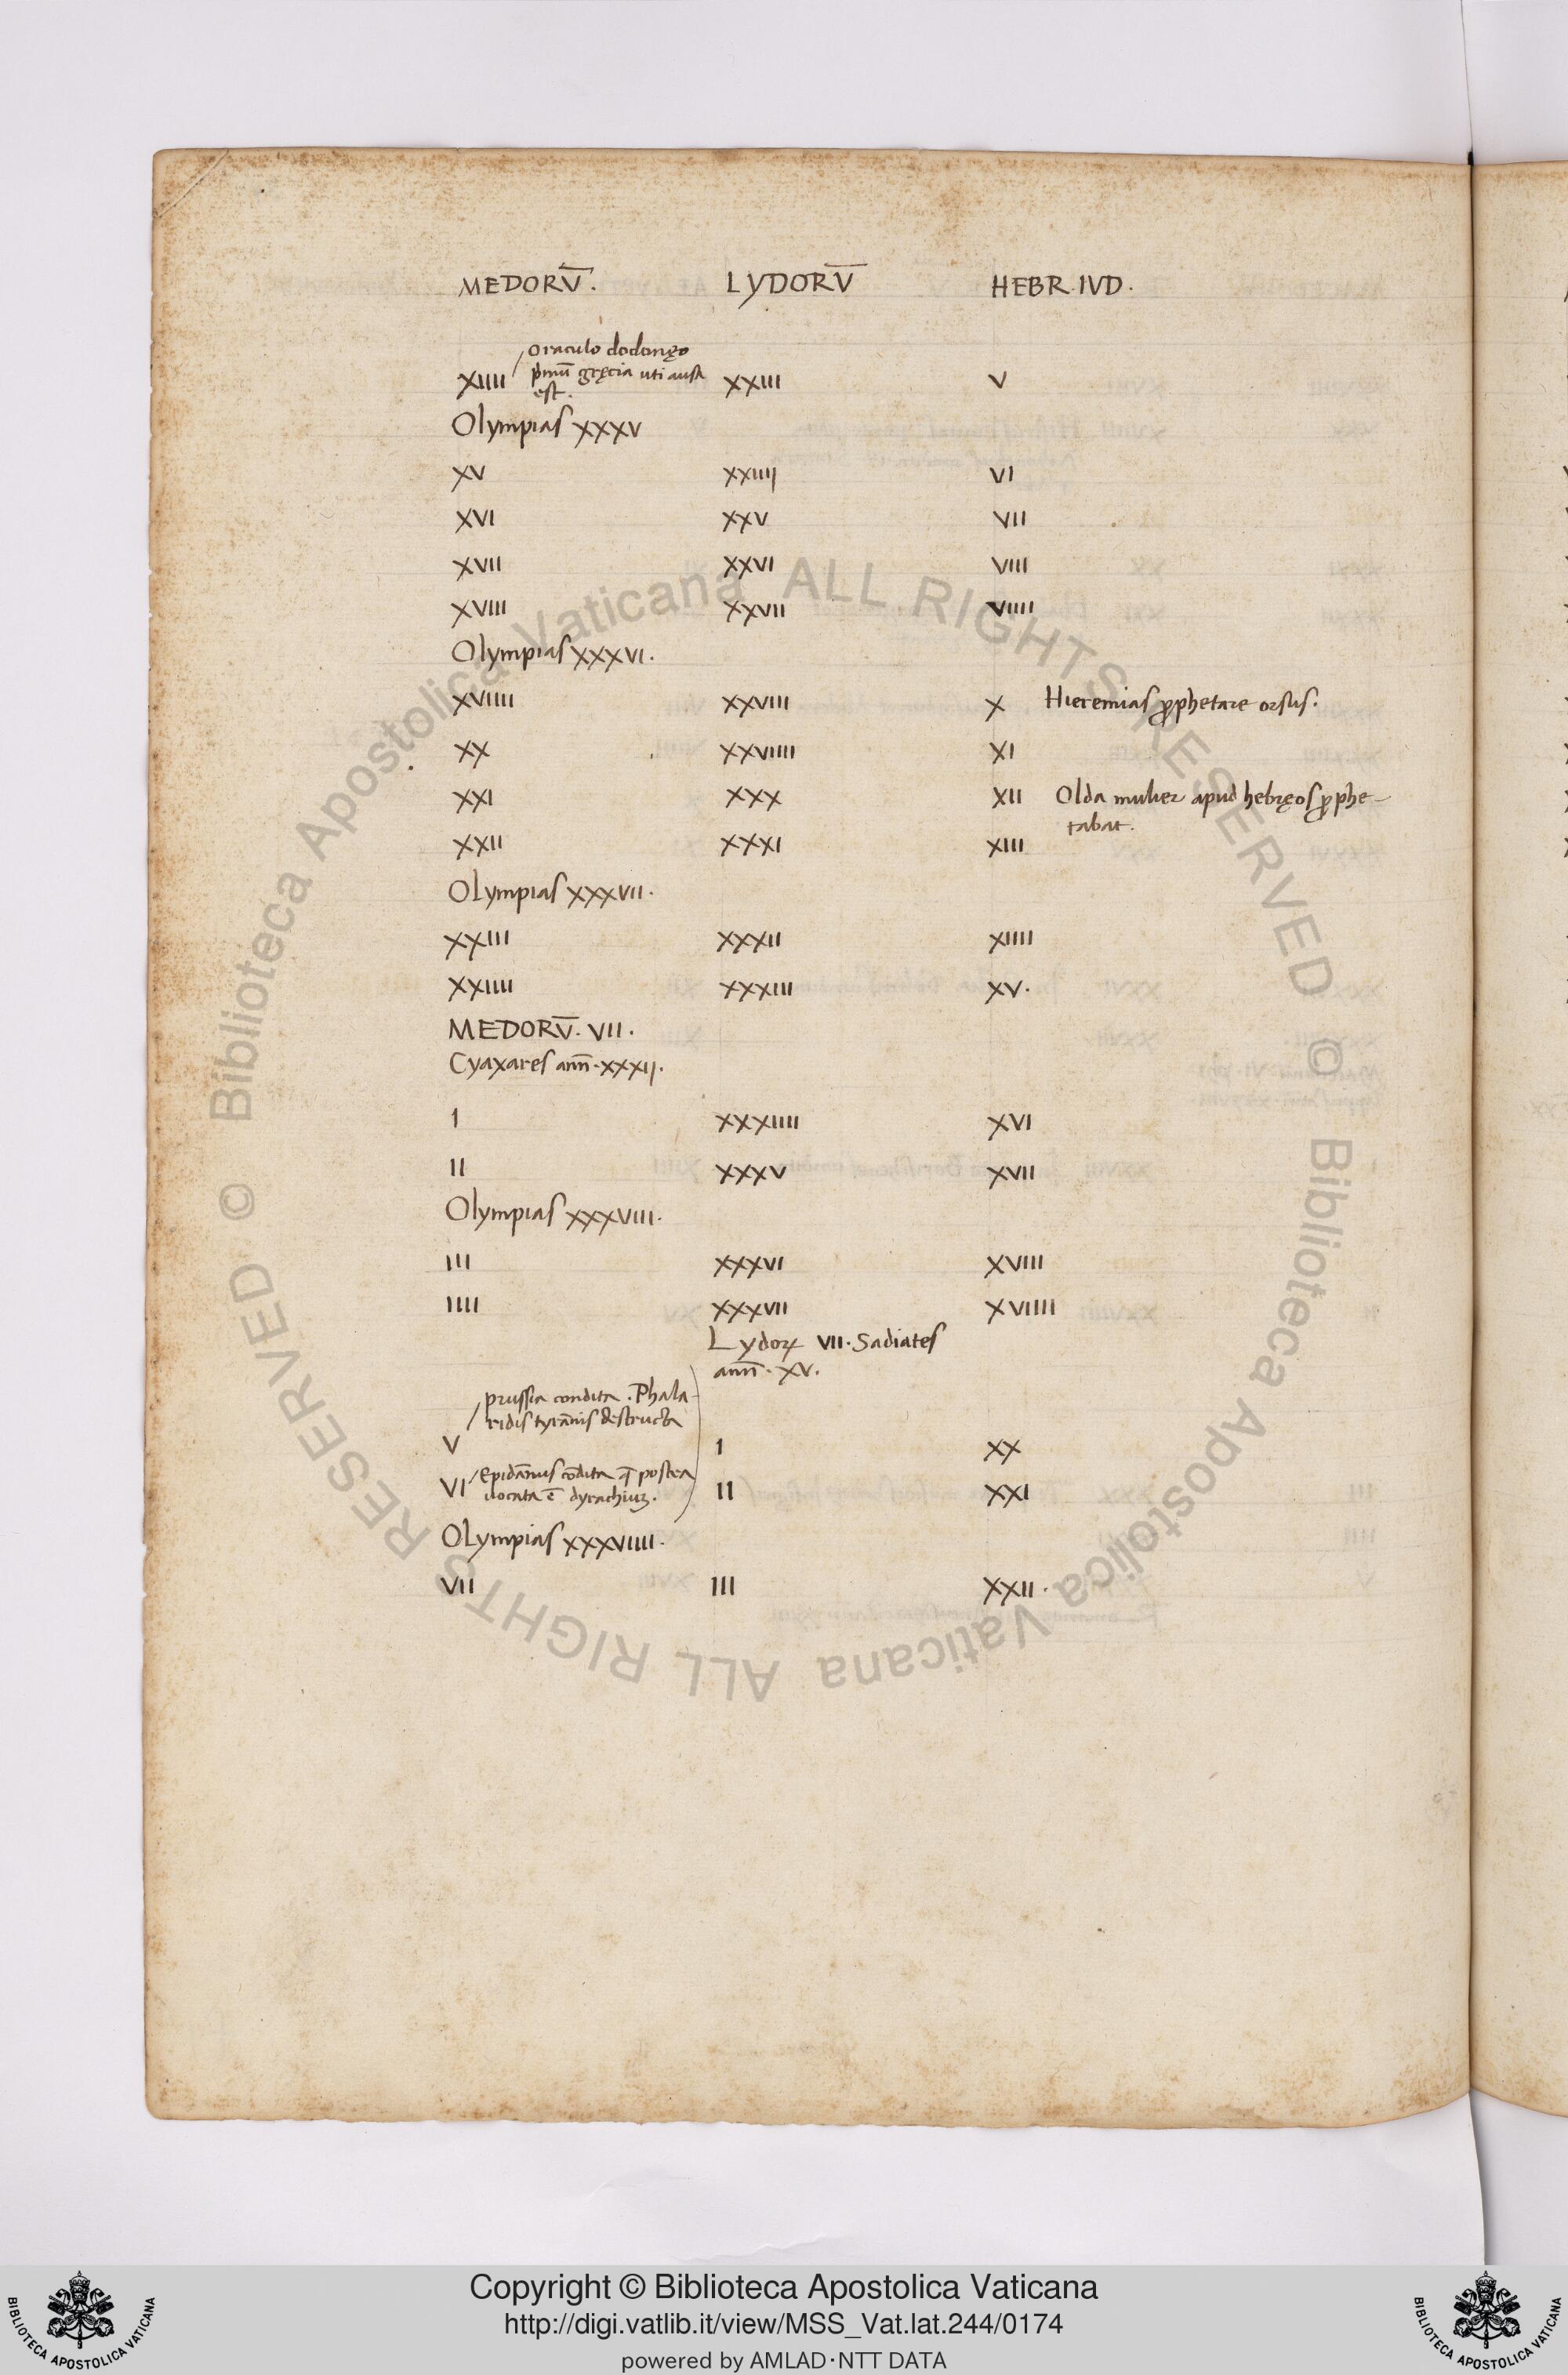 MEDORV̄. LYDORV̄ HEBR.IVD.
oraculo dodonęo
XIIII p̄mū gręcia uti ausa XXIII V
est.
Olympias XXXV
XV XXIIII VI
XVI XXV VII
XVII XXVI VIII
XVIII XXVII VIIII
Olympias XXXVI.
XVIIII XXVIII X Hieremias ꝓphetare orsus.
XX XXVIIII XI
XXI XXX XII Olda mulier apud hebręos ꝓphe-
tabat.
XXII XXXI XIII
Olympias XXXVII.
XXIII XXXII XIIII
XXIIII XXXIII XV.
MEDORV̄. VII.
Cyaxares ann̄. XXXII.
I XXXIIII XVI
II XXXV XVII
Olympias XXXVIII.
III XXXVI XVIII
IIII XXXVII XVIIII
Lydoꝝ VII. Sadiates
ann̄. XV.
prussia condita. Phala-
ridis tyrānis destructa
V I XX
VI Epidānus cōdita q̄ postea II XXI
uocata ē dyrachiuꝫ.
Olympias XXXVIIII.
VII III XXII.
© Biblioteca Apostolica Vaticana ALL RIGHTS RESERVED
© Biblioteca Apostolica Vaticana ALL RIGHTS RESERVED
Copyright © Biblioteca Apostolica Vaticana
http://digi.vatlib.it/view/MSS_Vat.lat.244/0174
powered by AMLAD·NTT DATA
BIBLIOTECA APOSTOLICA VATICANA
BIBLIOTECA APOSTOLICA VATICANA